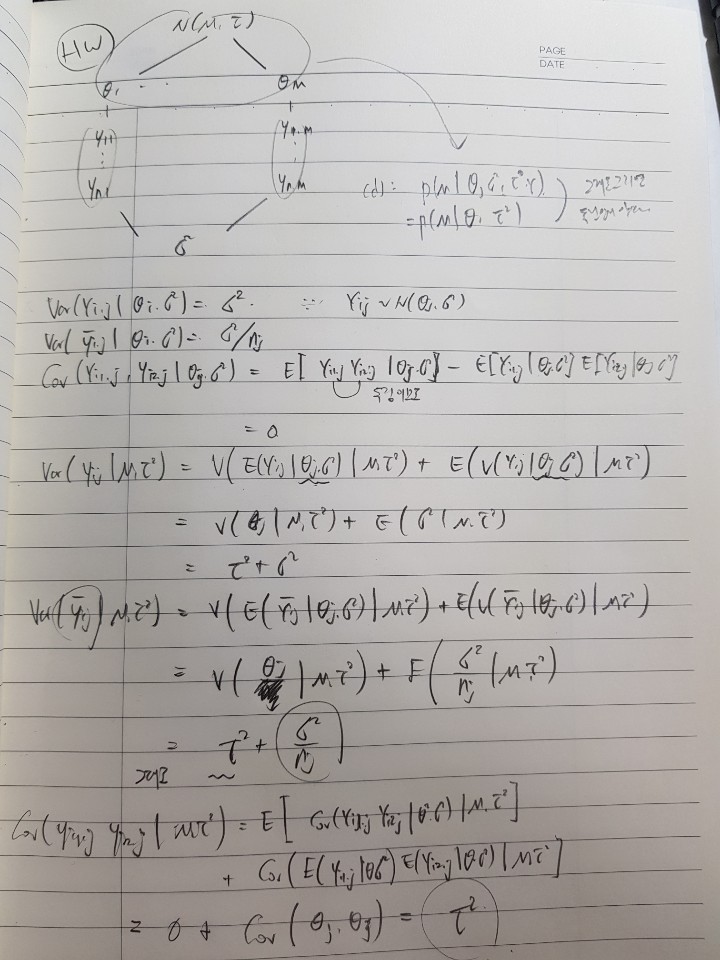 HW
N(μ, τ²)
PAGE
DATE
θ₁ ... θm
Y₁₁ Y₁.m
⋮ ⋮
Yn₁ Yn.m
σ²
(d): p(μ | θ, σ², τ², Y)
= p(μ | θ, τ²)
Var(Yi.j | θj.σ²) = σ². ∵ Yij ~ N(θj.σ²)
Var(Ȳi.j | θj.σ²) = σ²/nj
Cov(Yi₁.j, Yi₂.j | θj.σ²) = E[Yi₁.j Yi₂.j | θj.σ²] - E[Yi₁j | θj.σ²] E[Yi₂j | θj σ²]
독립이므로
= 0
Var(Yij | μ, τ²) = V(E(Yij | θj.σ²) | μ, τ²) + E(V(Yij | θj σ²) | μ τ²)
= V(θj | μ, τ²) + E(σ² | μ. τ²)
= τ² + σ²
Var(Ȳij | μ, τ²) = V(E(Ȳij | θj.σ²) | μ, τ²) + E(V(Ȳij | θj.σ²) | μ τ²)
= V(θj | μ, τ²) + E(σ²/nj | μ, τ²)
= τ² + σ²/nj
Cov(Yi₁.j Yi₂.j | μ τ²) = E[Cov(Yi₁j Yi₂j | θ.σ²) | μ, τ²]
+ Cov(E(Yi₁.j | θσ²) E(Yi₂.j | θσ²) | μ τ²]
= 0 + Cov(θj, θj) = τ²